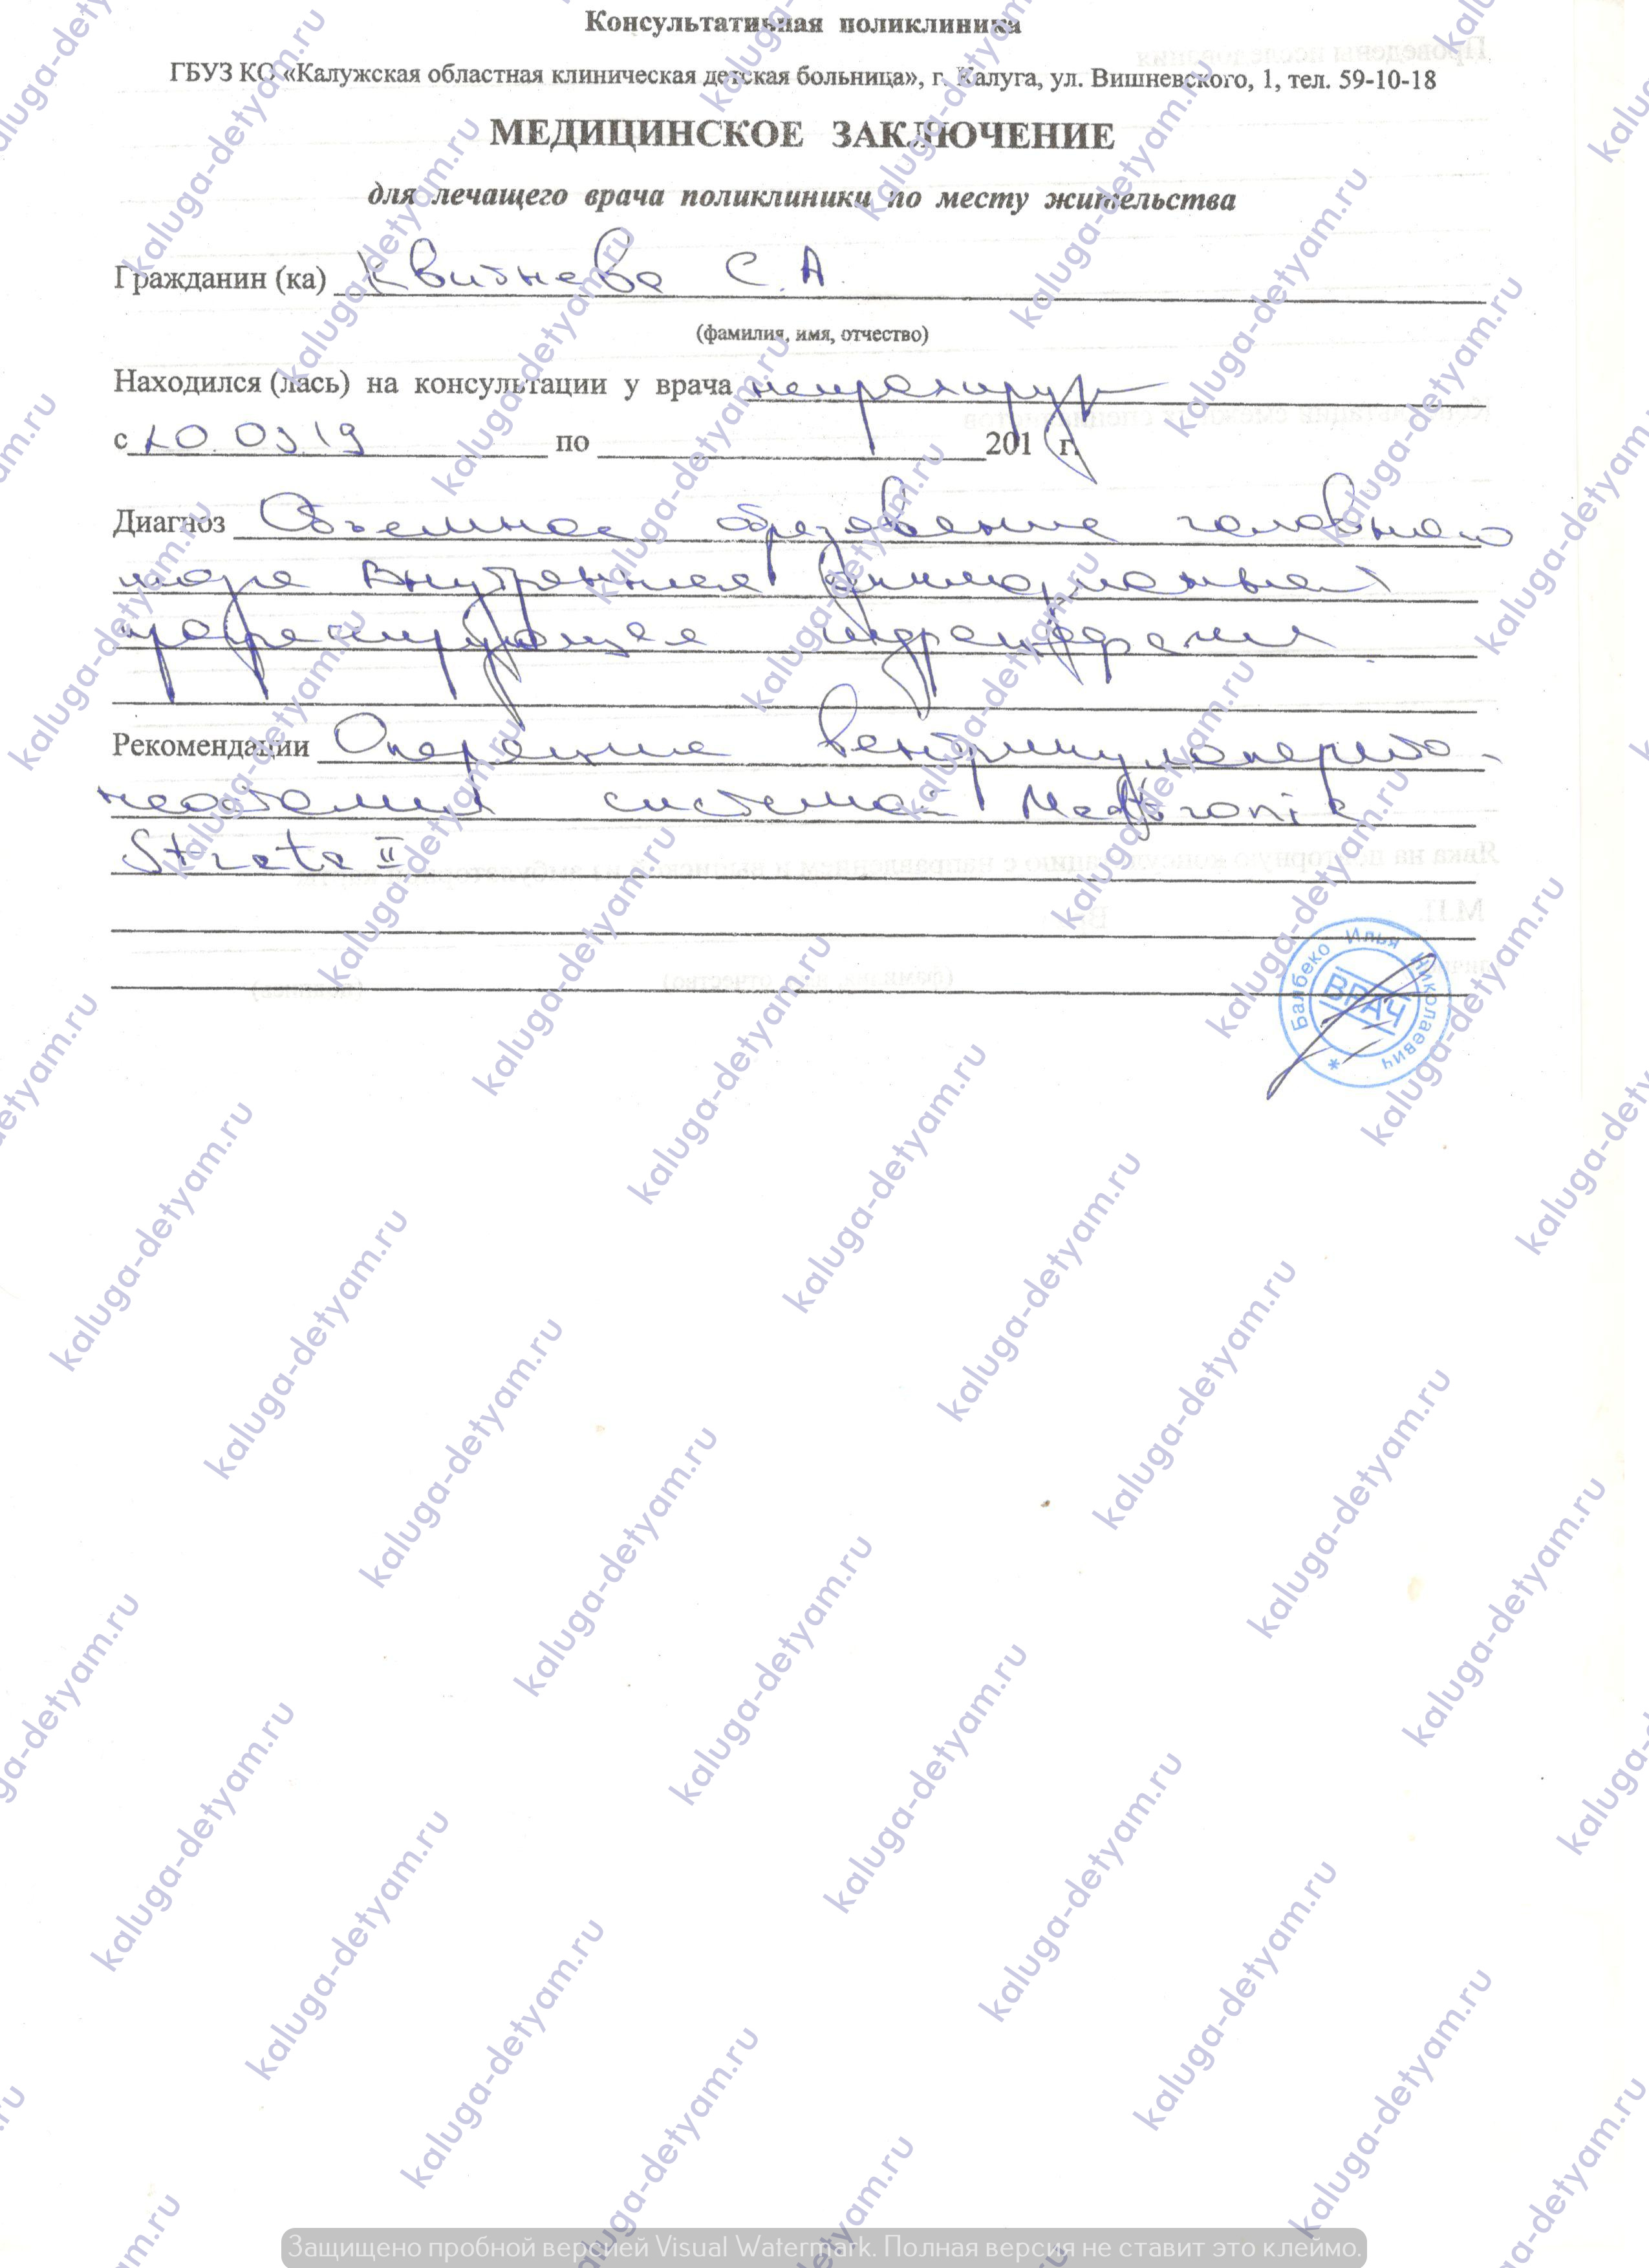 Консультативная поликлиника
ГБУЗ КО «Калужская областная клиническая детская больница», г. Калуга, ул. Вишневского, 1, тел. 59-10-18
МЕДИЦИНСКОЕ ЗАКЛЮЧЕНИЕ
для лечащего врача поликлиники по месту жительства
Гражданин (ка) С. А
(фамилия, имя, отчество)
Находился (лась) на консультации у врача нейрохирург
с 20.03.19 по 201 г.
Диагноз Объемное образование головного
мозга Внутренняя
прогрессирующая гидроцефалия
Рекомендации Операция вентрикулоперито-
неостомия системой Medtronic
Strata II
Балбеко Илья Николаевич
ВРАЧ
kaluga-detyam.ru
Защищено пробной версией Visual Watermark. Полная версия не ставит это клеймо.